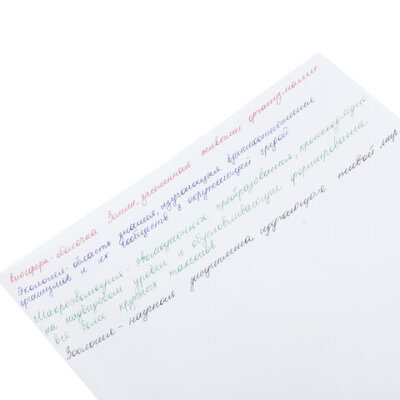 Биосфера - оболочка Земли, заселенная живыми организмами
Экология - область знания, изучающая взаимоотношения
организмов и их сообществ с окружающей средой
Макроэволюция - эволюционные преобразования, происходящие
на надвидовом уровне и обусловливающие формирование
все более крупных таксонов
Зоология - научная дисциплина, изучающая живой мир